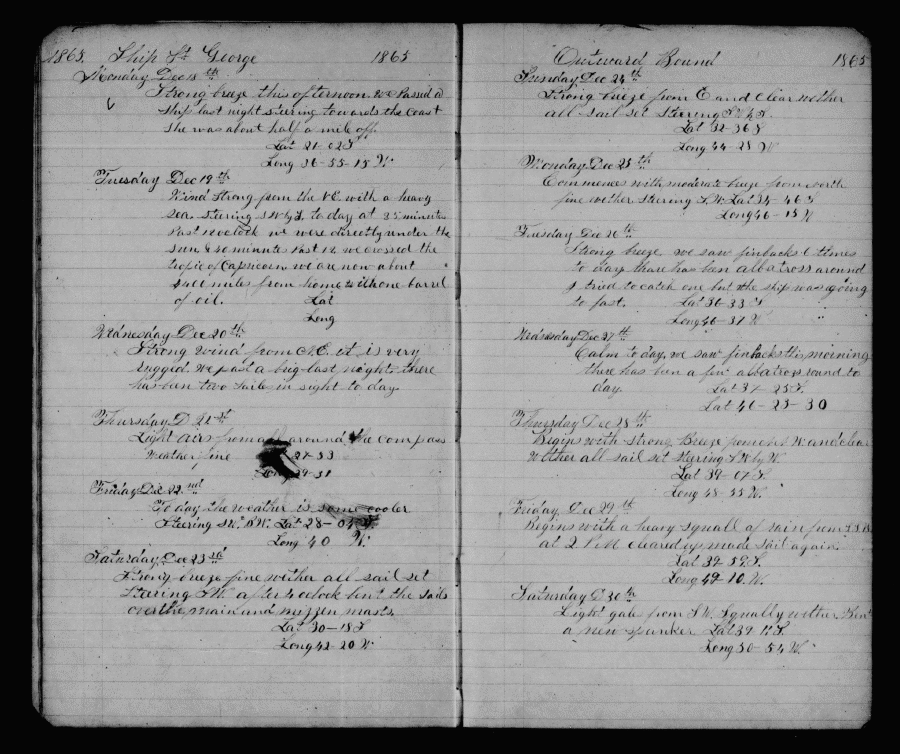 1865. Ship St George 1865
Monday Dec 18th
Strong breze this afternoon. We Passed a
Ship last night Stering towards the Coast
She was about half a mile off.
Lat 21-02 S
Long 36-55-15 W.
Tuesday Dec 19th
Wind Strong from the N.E. with a heavy
Sea. Stering SW by S. to day at 35 minutes
Past 12 oclock we were directly under the
Sun & 40 minutes Past 12 we crossed the
tropic of Capricorn we are now about
miles from home with one barrel
of oil. Lat
Long
Wednesday Dec 20th
Strong Wind from N.E. it is very
rugged. We past a brig last night there
has ben two Sails in sight to day
Thursday D 21st
Light airs from all around the compass
Weather fine 27-33
Long 39-31
Friday Dec 22nd
To day the weather is some cooler
Stering SW. B W. Lat 28-04 S.
Long 40 W.
Saturday Dec 23rd
Strong breze fine wether all sail set
Steering SW after 4 oclock bent the sails
over the main and mizzen masts
Lat 30-18 S
Long 42-20 W
Outward Bound 1865
Sunday Dec 24th
Strong breeze from E and clear wether
all sail set Steering
Lat 32-36 S
Long 44-28 W
Monday Dec 25th
Commences with moderate breze from north
fine wether Steering S.W. Lat 34-46 S
Long 46-15 W
Tuesday Dec 26th
Strong breeze we saw finbacks 6 times
to day thare has ben albatross around
I tried to catch one but the ship was going
to fast. Lat 36-33 S
Long 46-37 W.
Wednesday Dec 27th
Calm to day. we saw finbacks this morning
there has ben a few albatross round to
day. Lat 37-25 S.
Lat 46-23-30
Thursday Dec 28th
Begins with strong Breeze from N W. and clear
Wether all sail set Steering S W by W.
Lat 39-07 S.
Long 48-55 W.
Friday Dec 29th
Begins with a heavy squall of rain from
at 2 P.M cleared up made sail again.
Lat 39-59 S.
Long 49-10. W.
Saturday D 30th
Light gale from S W. Squally wether. Bent
a new spanker Lat 39 11 S.
Long 50-54 W.